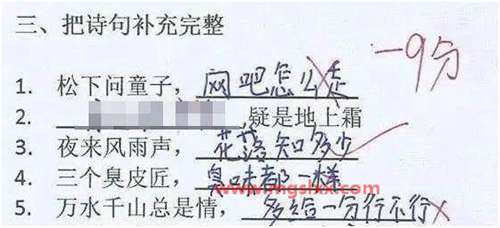 三、把诗句补充完整
-9分
1. 松下问童子，网吧怎么走
2. ，疑是地上霜
3. 夜来风雨声，花落知多少
4. 三个臭皮匠，臭味都一样
5. 万水千山总是情，多给一分行不行
www.lmgshxx.com